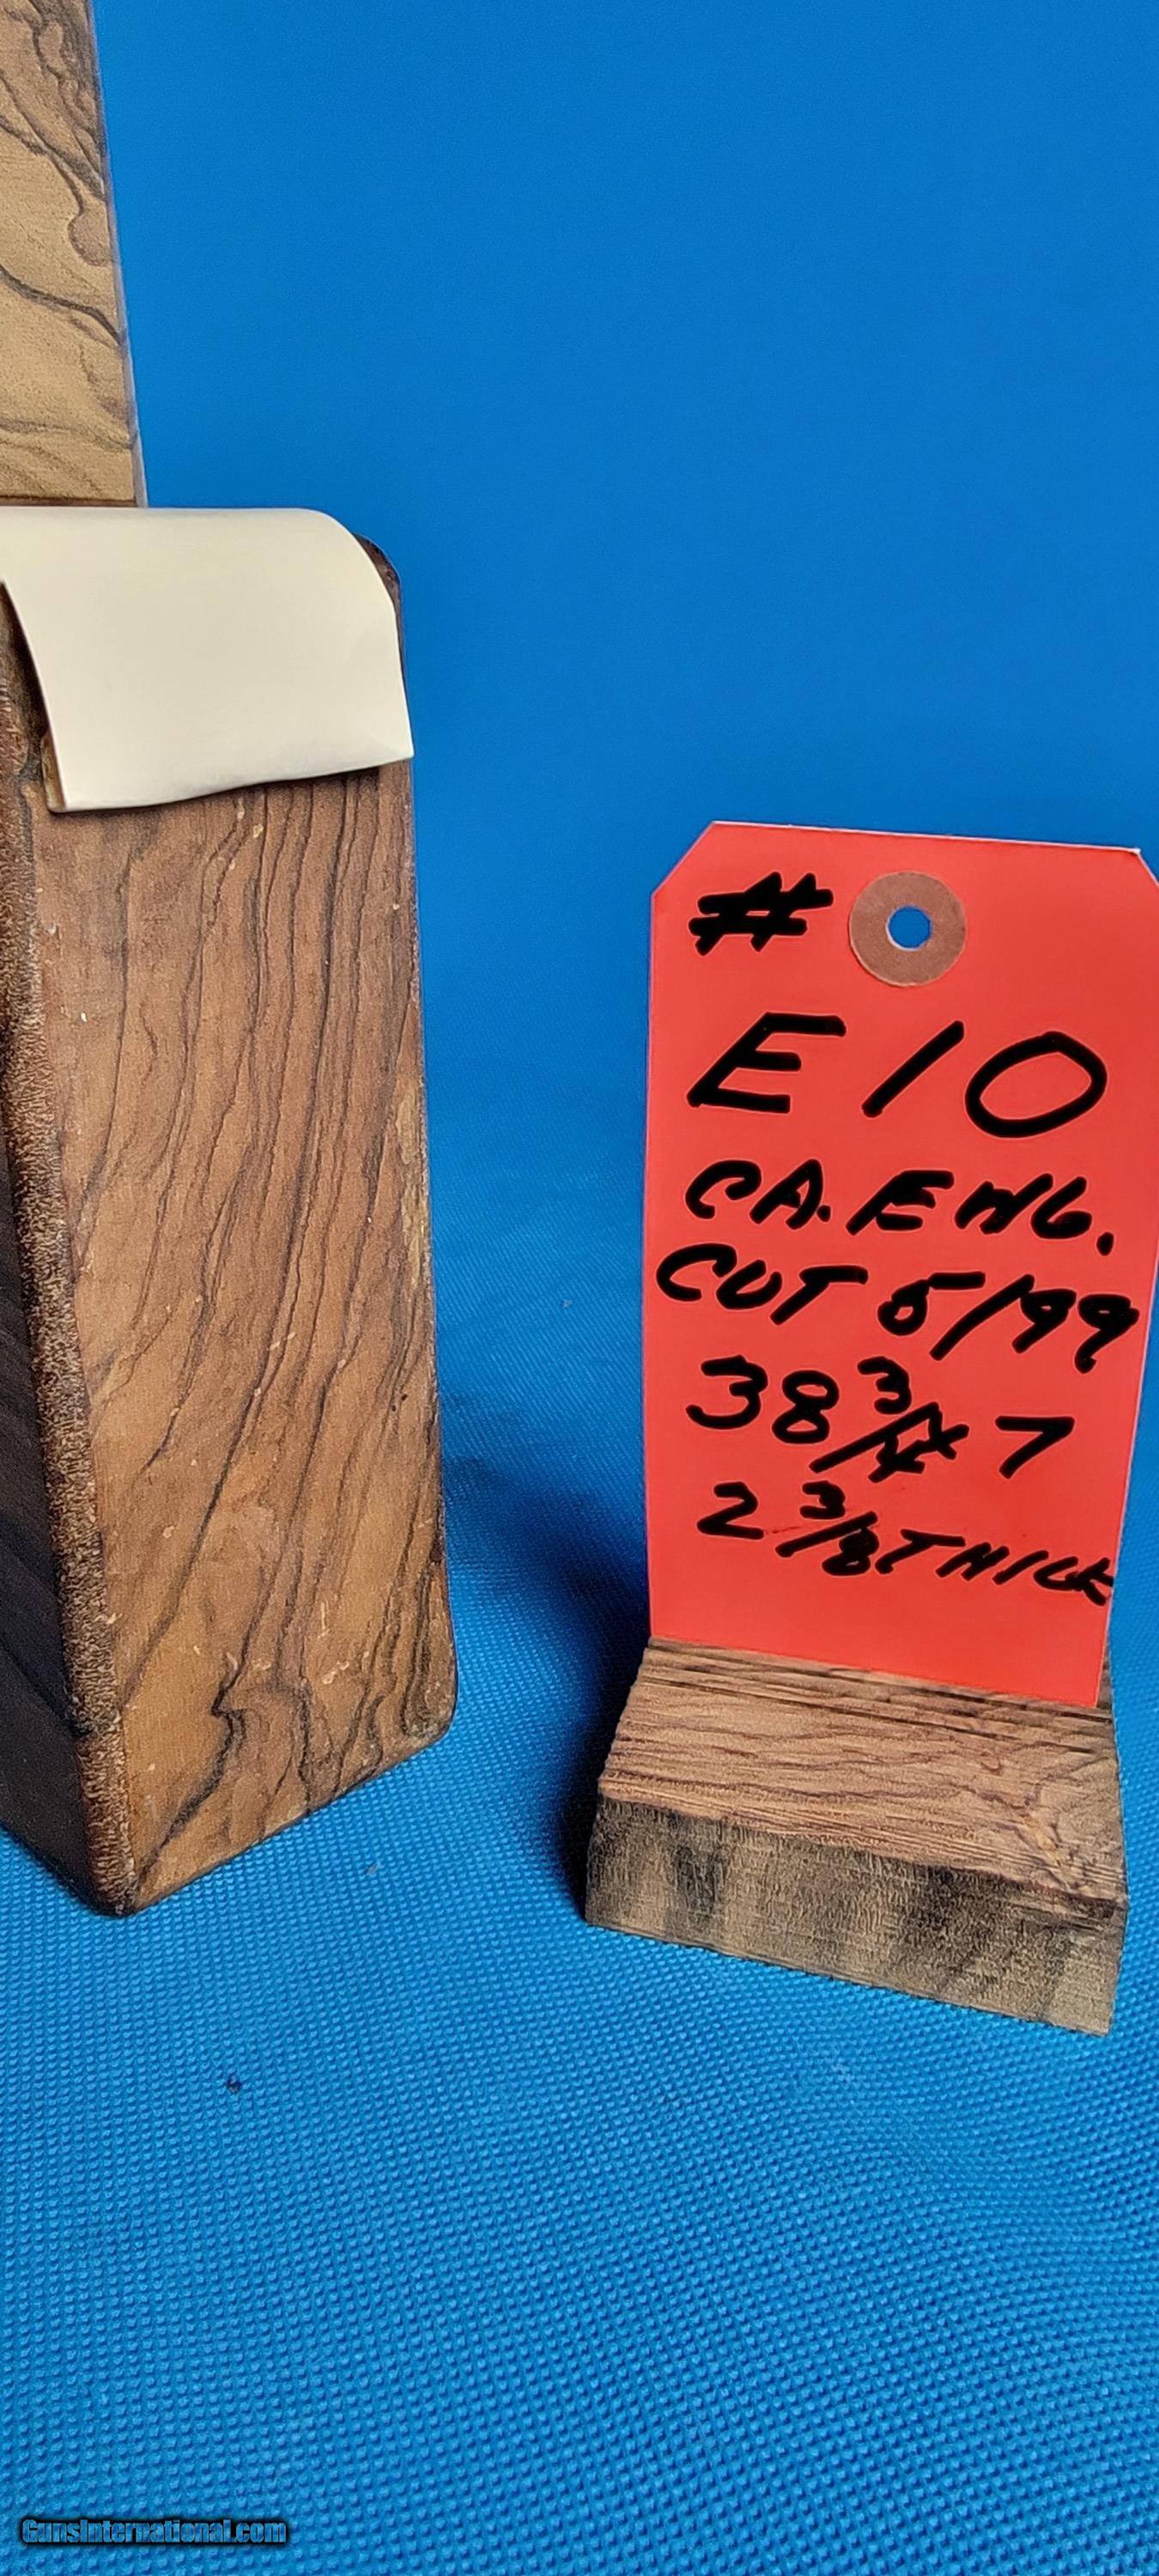 #
E10
CA. ENG.
CUT 5/99
38 3/4 7
2 3/8 THICK
GunsInternational.com